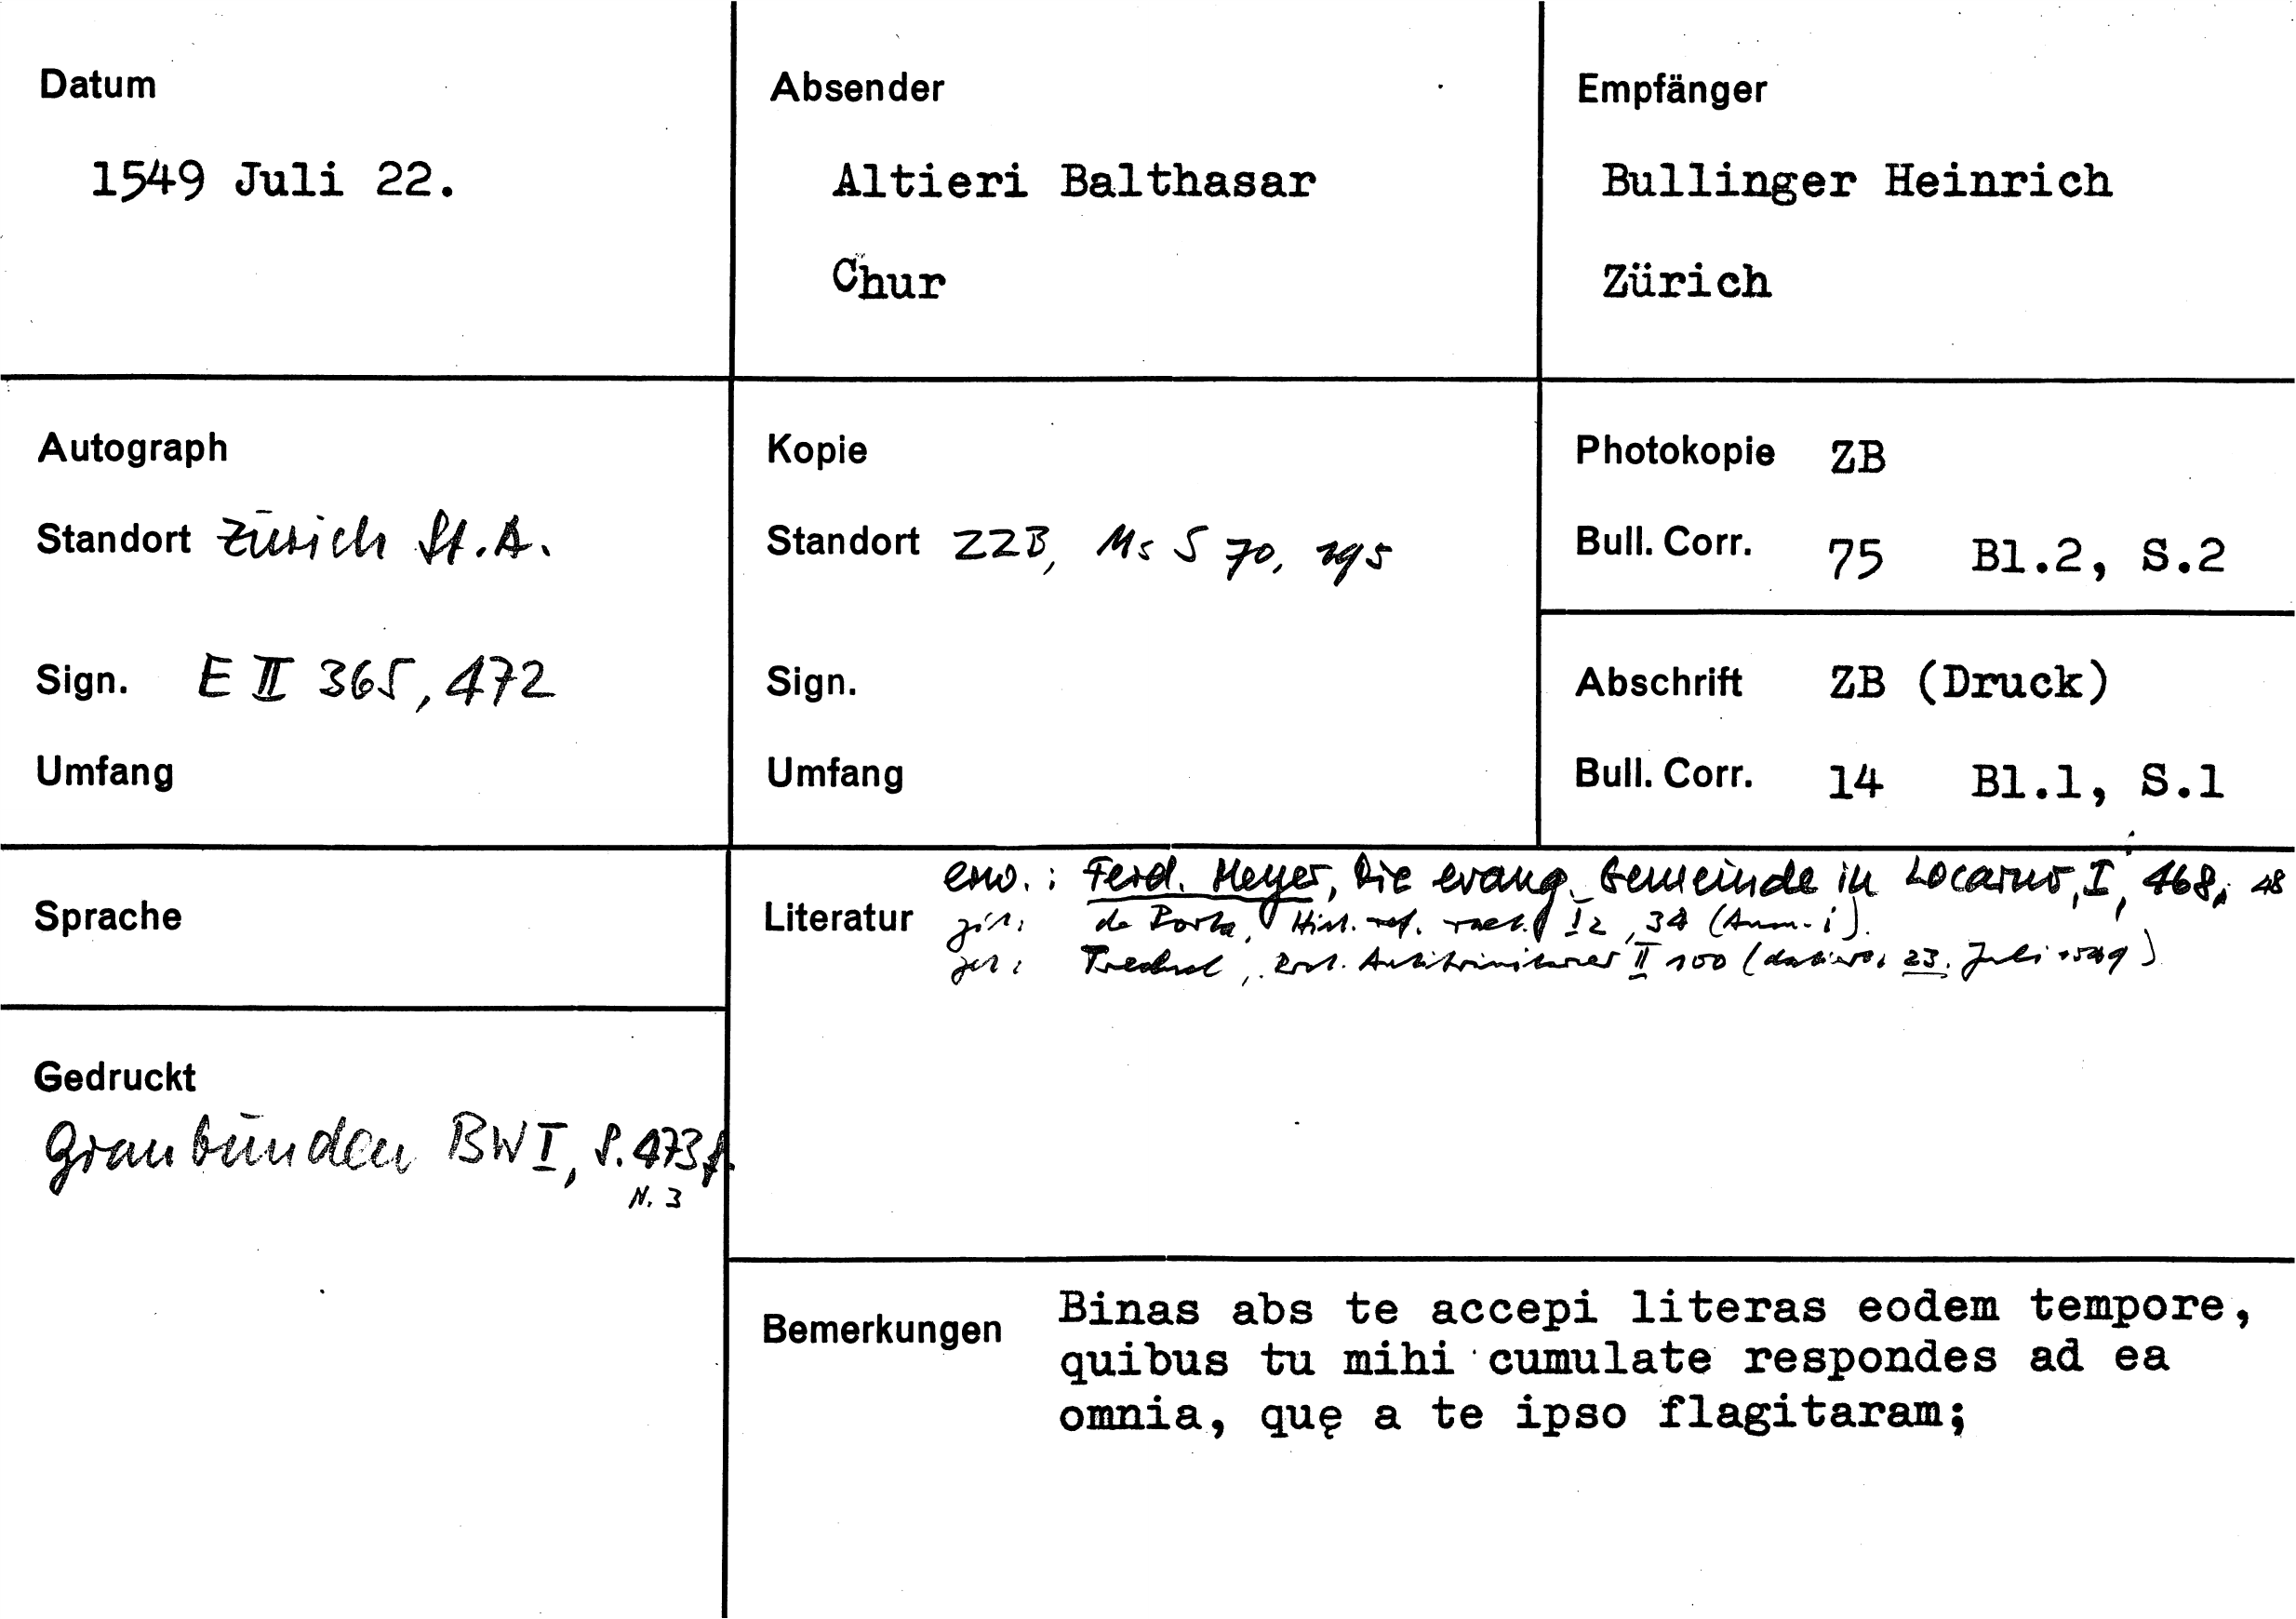 Datum
1549 Juli 22.
Absender
Altieri Balthasar
Chur
Empfänger
Bullinger Heinrich
Zürich
Autograph
Standort Zürich St.A.
Sign. E II 365, 472
Umfang
Kopie
Standort ZZB, Ms S 70, 195
Sign.
Umfang
Photokopie ZB
Bull. Corr. 75 Bl.2, S.2
Abschrift ZB (Druck)
Bull. Corr. 14 Bl.1, S.1
Sprache
Gedruckt
Graubünden BW I, S. 473f.
N. 3
Literatur
erw.: Ferd. Meyer, Die evang. Gemeinde in Locarno, I, 468, 48
zit: de Porta, Hist. ref. raet. I 2, 34 (Anm. i).
zit: Trechsel, Prot. Antitrinitarier II 100 (datiert 23. Juli 1549)
Bemerkungen
Binas abs te accepi literas eodem tempore,
quibus tu mihi cumulate respondes ad ea
omnia, quę a te ipso flagitaram;